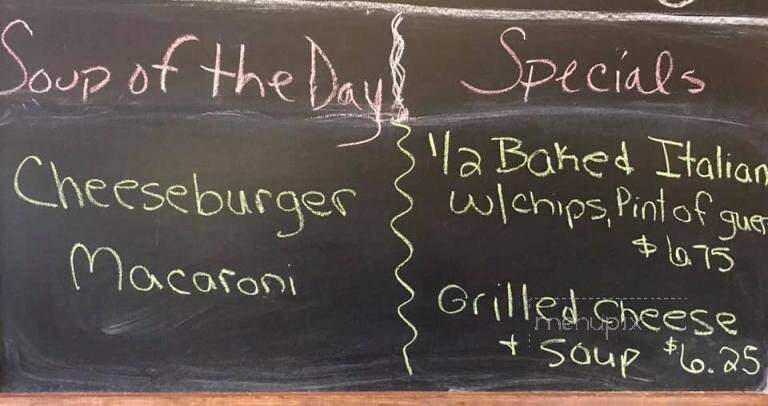 Soup of the Day
Cheeseburger
Macaroni
Specials
1/2 Baked Italian
w/chips, Pint of guer
$6.75
Grilled Cheese
+ soup $6.25
menupix